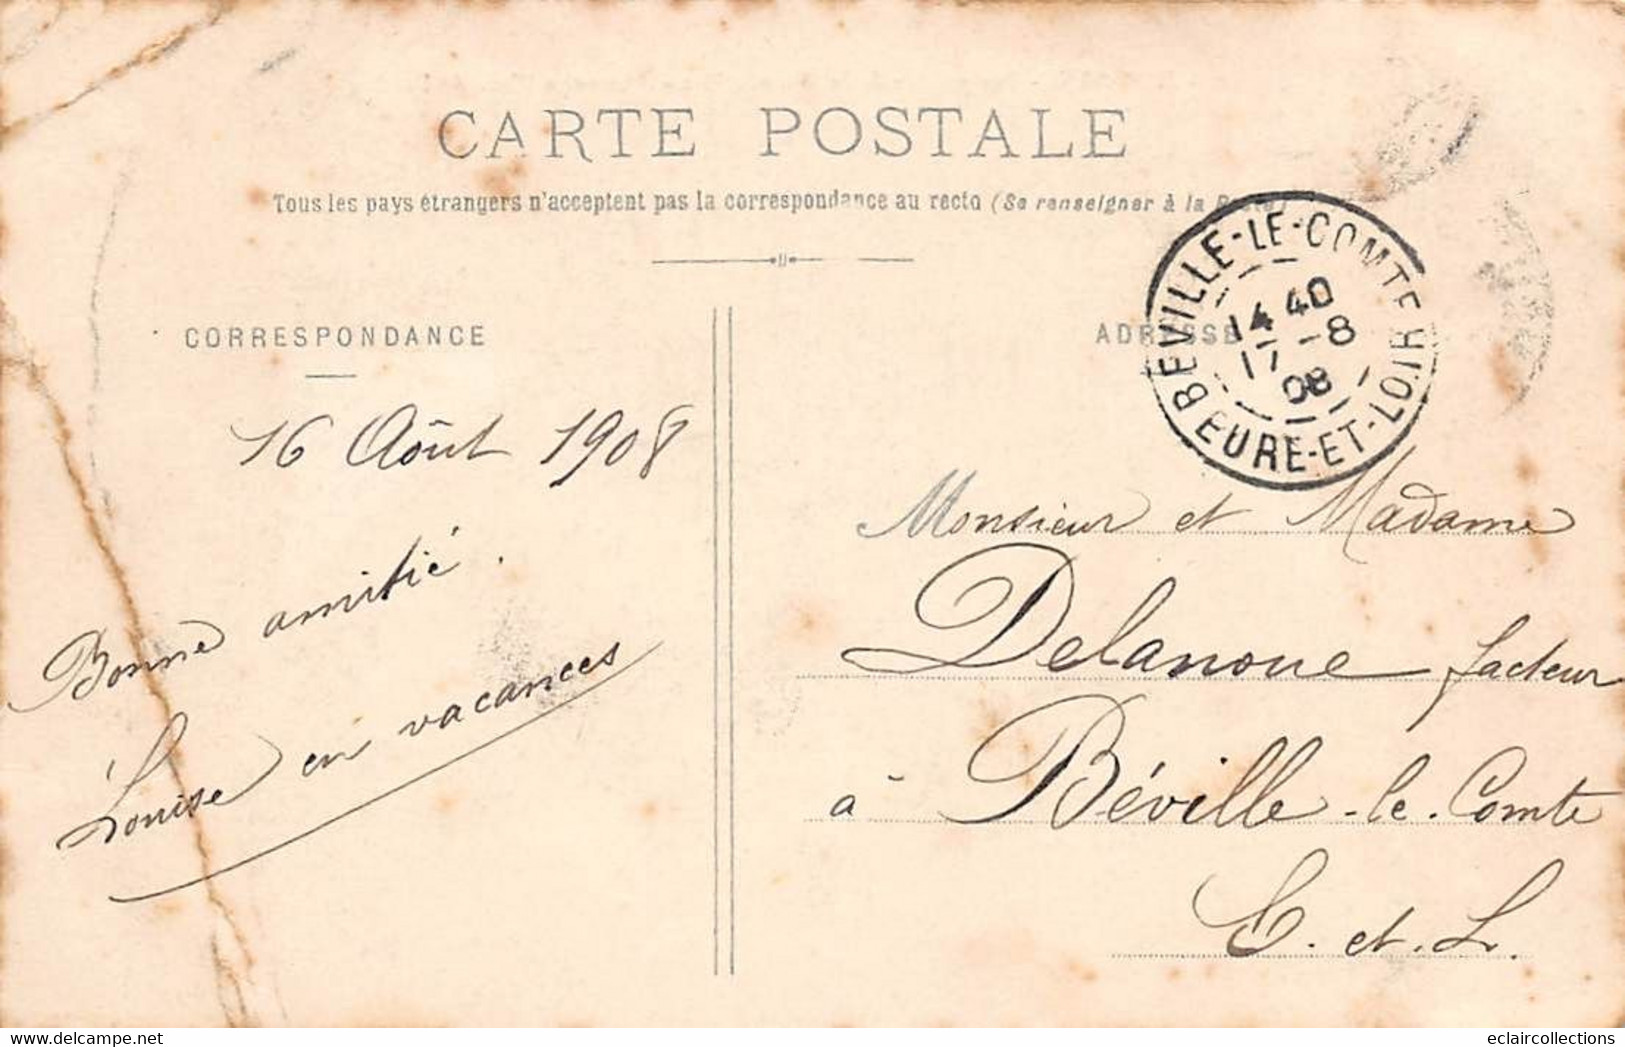 CARTE POSTALE
Tous les pays étrangers n'acceptent pas la correspondance au recto (Se renseigner à la Poste)
CORRESPONDANCE
ADRESSE
BÉVILLE-LE-COMTE
14 40
17 -8
08
EURE-ET-LOIR
16 Août 1908
Bonne amitié.
Louise en vacances
Monsieur et Madame
Delanoue facteur
à Béville-le-Comte
E. et. L.
delcampe.net
eclaircollections